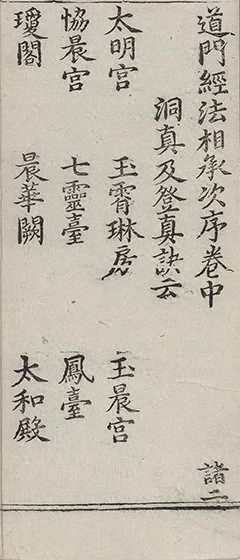 道門經法相承次序卷中 諸二
洞真及登真訣云
太明宮 玉霄琳房 玉晨宮
協晨宮 七靈臺 鳳臺
瓊閣 晨華闕 太和殿